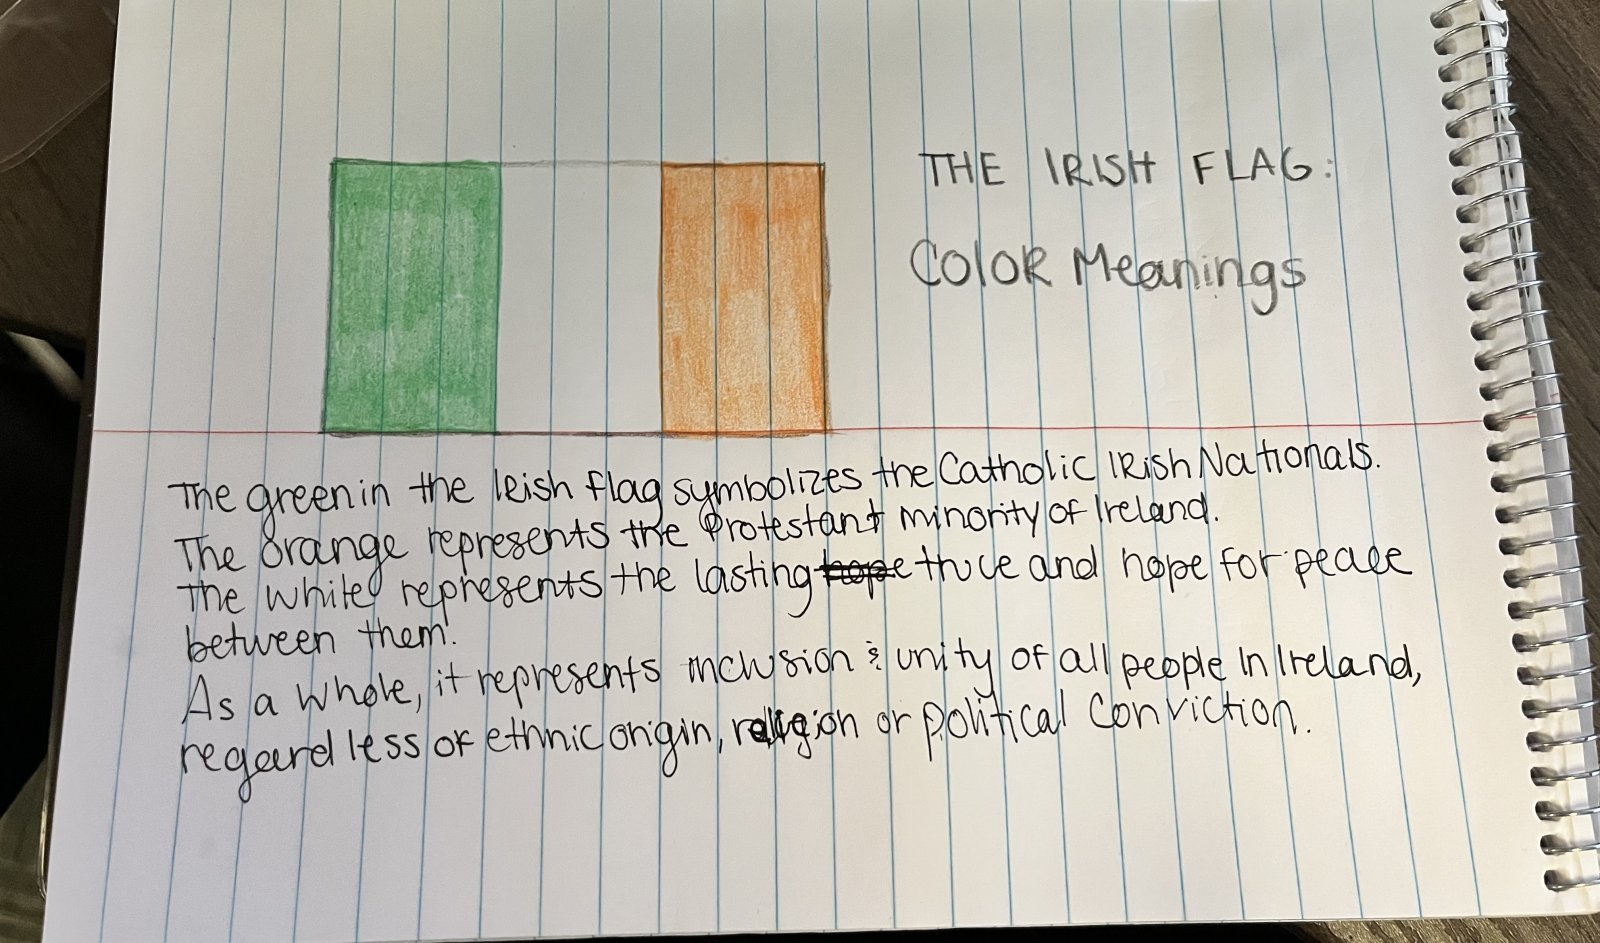 THE IRISH FLAG:
Color Meanings
The green in the Irish flag symbolizes the Catholic Irish Nationals.
The orange represents the Protestant minority of Ireland.
The white represents the lasting hope truce and hope for peace
between them.
As a whole, it represents inclusion & unity of all people in Ireland,
regardless of ethnic origin, religion or political conviction.